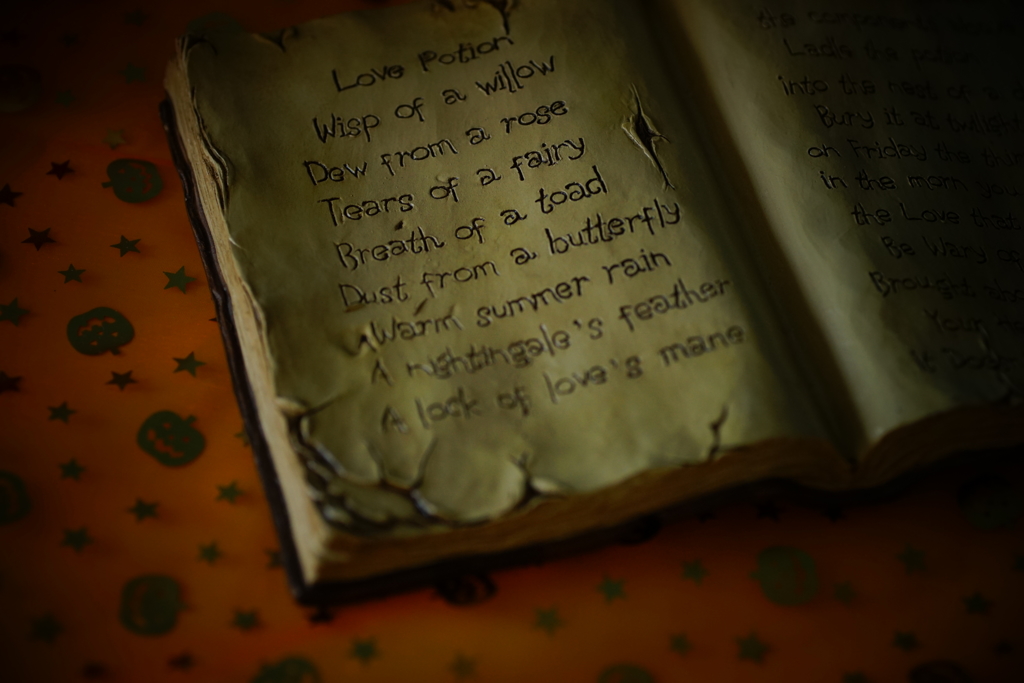 Love Potion
Wisp of a willow
Dew from a rose
Tears of a fairy
Breath of a toad
Dust from a butterfly
Warm summer rain
A nightingale's feather
A lock of love's mane
the components
Ladle the potion
into the nest of a
Bury it at twilight
on Friday the
in the morn you
the Love that
Be Wary
Brought
Your
It